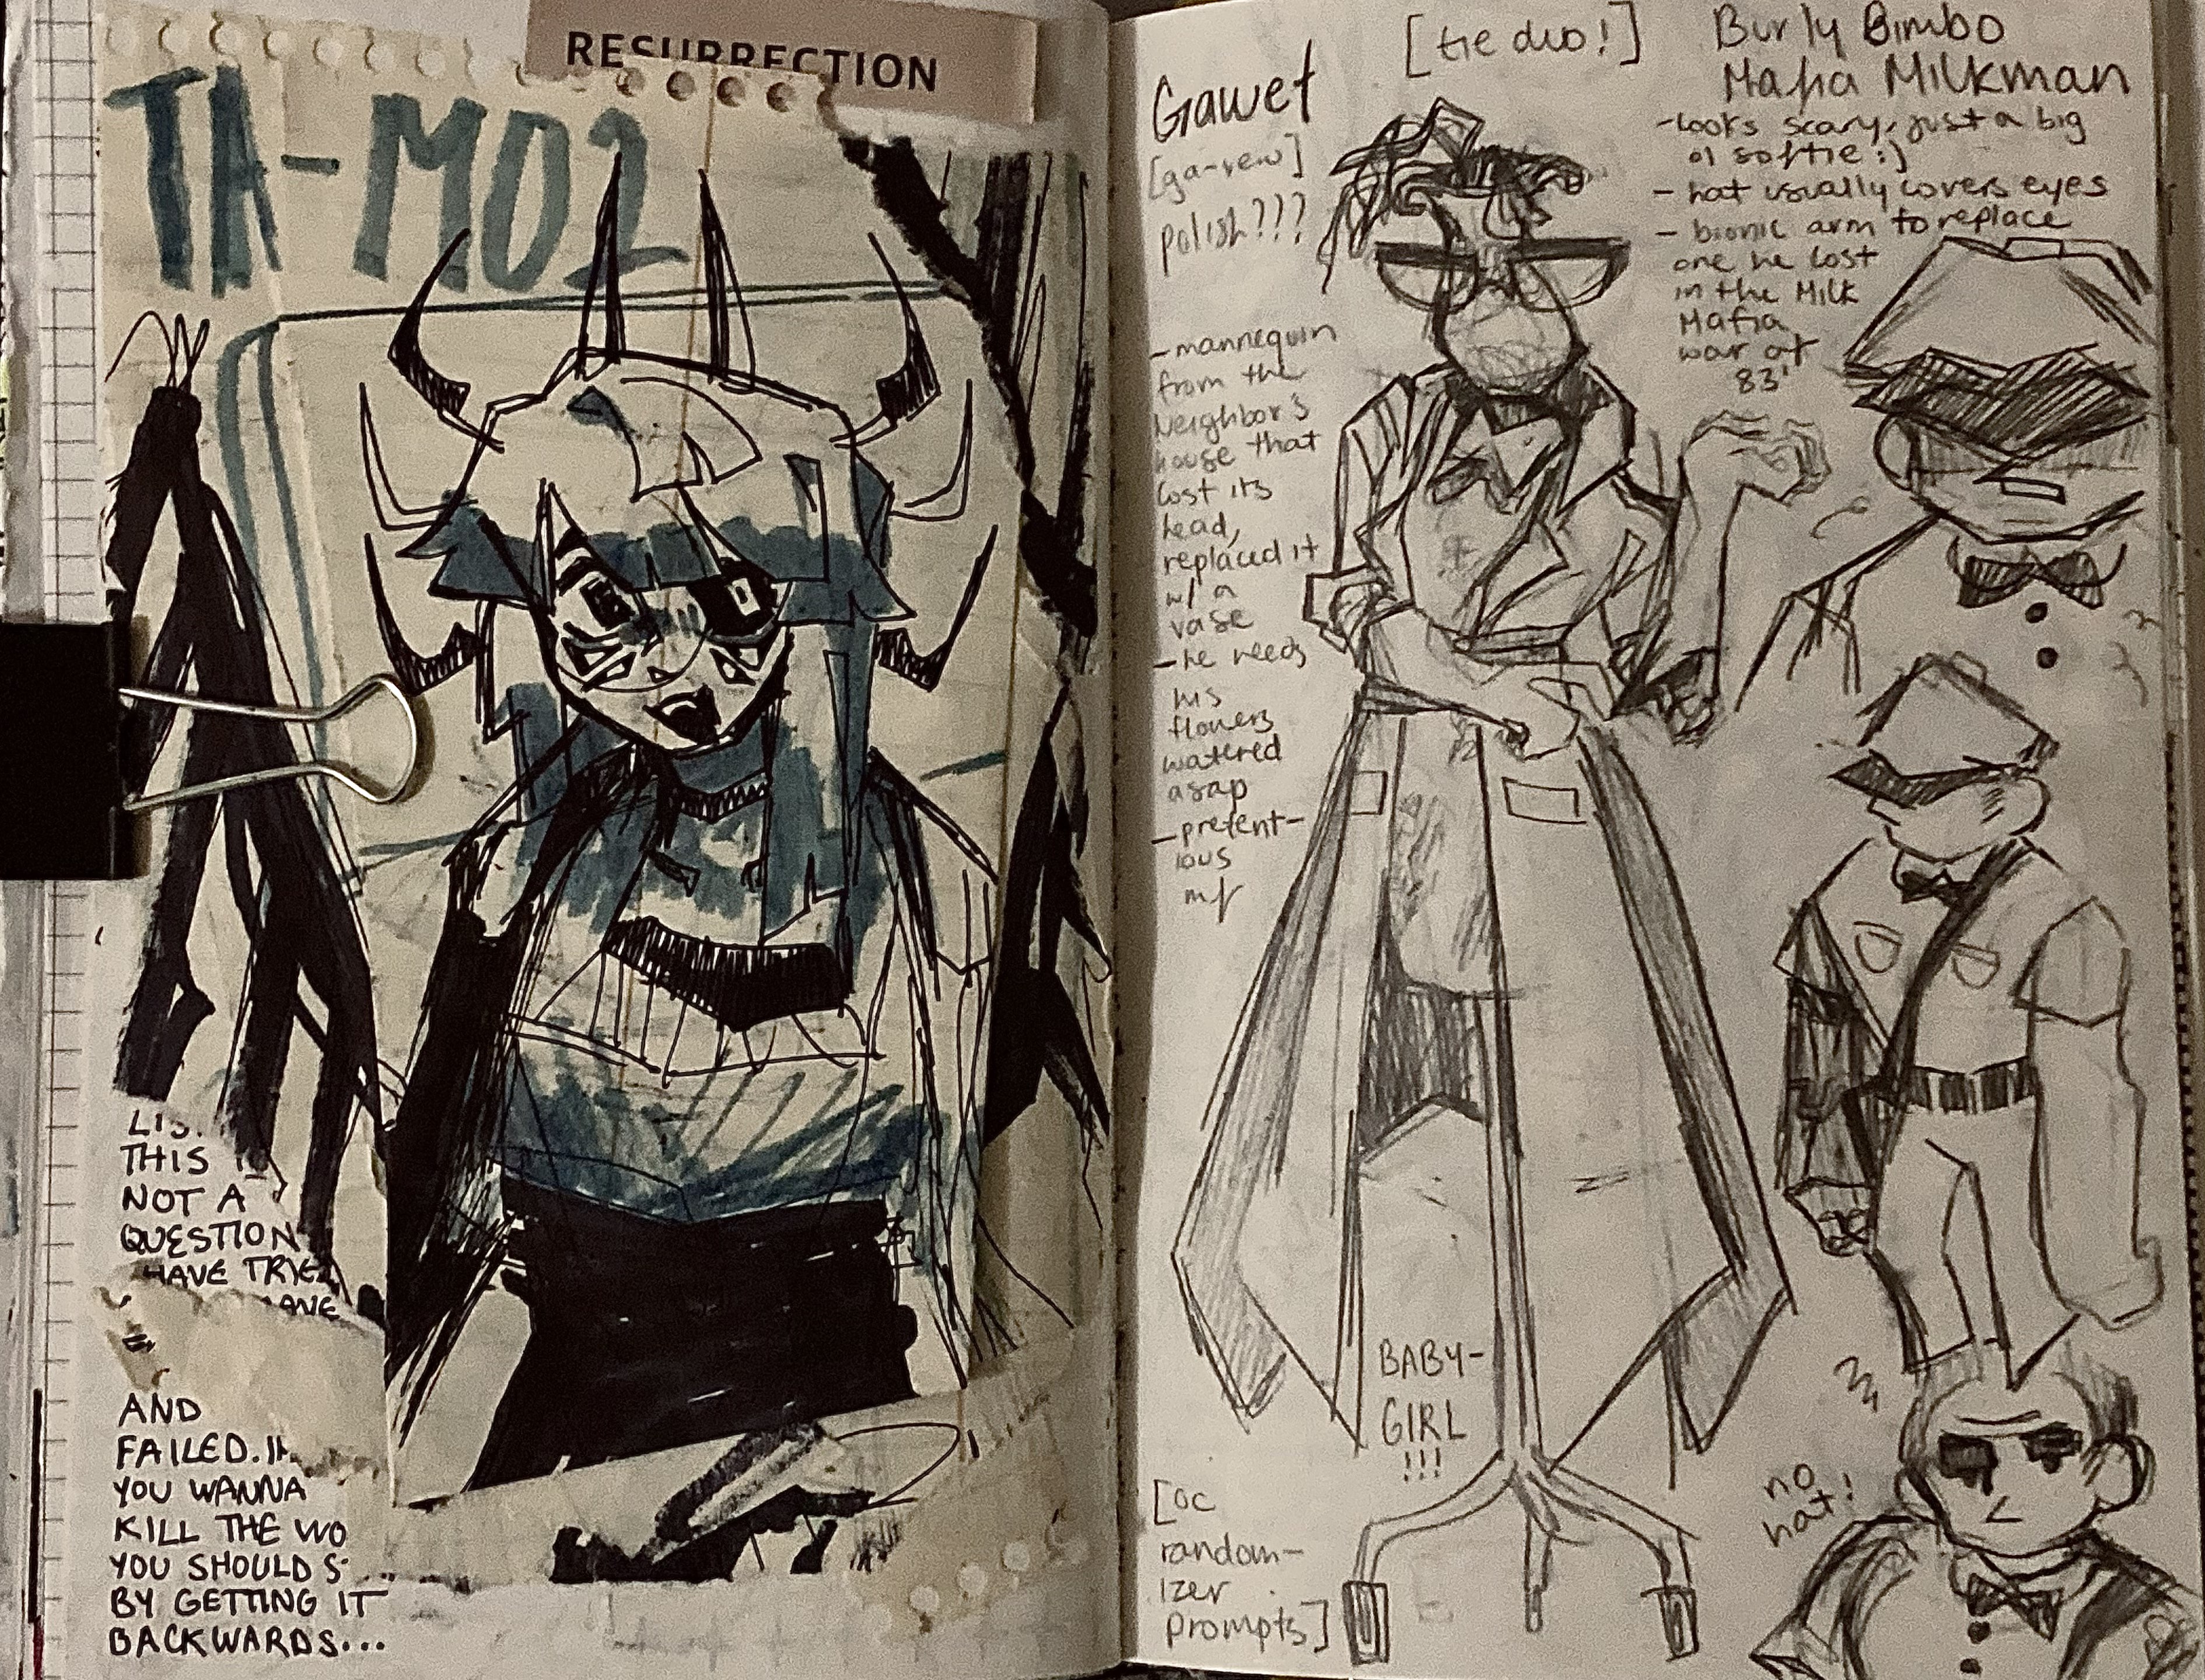 RESURRECTION
TA-MO2
THIS
NOT A
QUESTION
HAVE TRIE
AND
FAILED.
YOU WANNA
KILL THE WO
YOU SHOULD S
BY GETTING IT
BACKWARDS...
[tie duo!]
Gawet
[ga-vew]
polish???
-mannequin
from the
neighbor's
house that
lost its
head,
replaced it
w/ a
vase
-he needs
his
flowers
watered
asap
-pretent-
ious
mf
BABY-
GIRL
!!!
[oc
random-
izer
prompts]
Burly Bimbo
Mafia Milkman
-looks scary, just a big
ol softie :]
- hat usually covers eyes
- bionic arm to replace
one he lost
in the Milk
Mafia
war of
83'
no
hat!